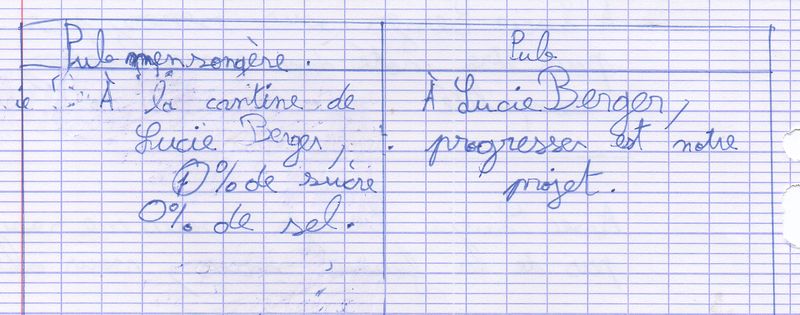 Pub mensongère.
Pub
À la cantine de
Lucie Berger,
0% de sucre
0% de sel.
À Lucie Berger,
progresser est notre
projet.